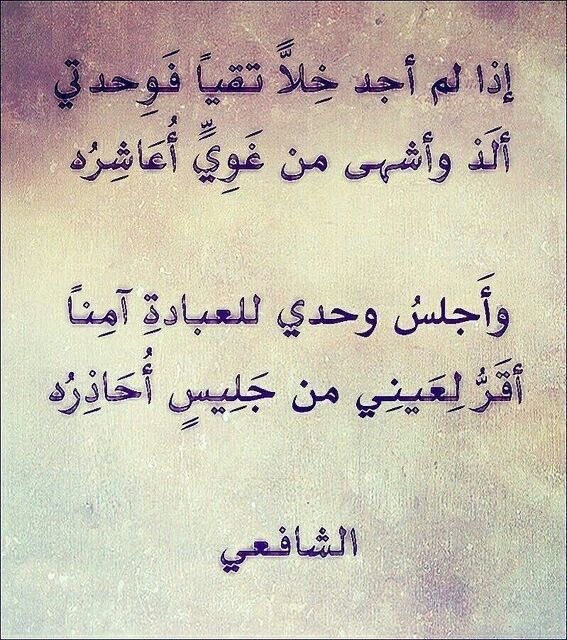 إذا لم أجد خِلاًّ تقياً فَوِحدتي
ألَذ وأشهى من غَوِيٍّ أُعَاشِرُه
وأَجلسُ وحدي للعبادةِ آمِناً
أقَرُّ لِعَينِي من جَلِيسٍ أُحَاذِرُه
الشافعي